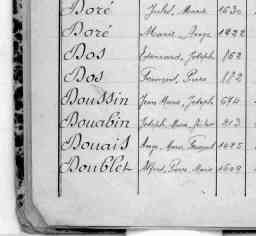 Doré Jules, Marie 1630
Doré Marie, Ange 1922
Dos Edouard, Joseph 862
Dos François, Pierre 882
Doussin Jean Marie, Joseph 674
Douabin Joseph, Marie 813
Douais Ange, Marie, François 1495
Doublet Alfred, Pierre, Marie 1609